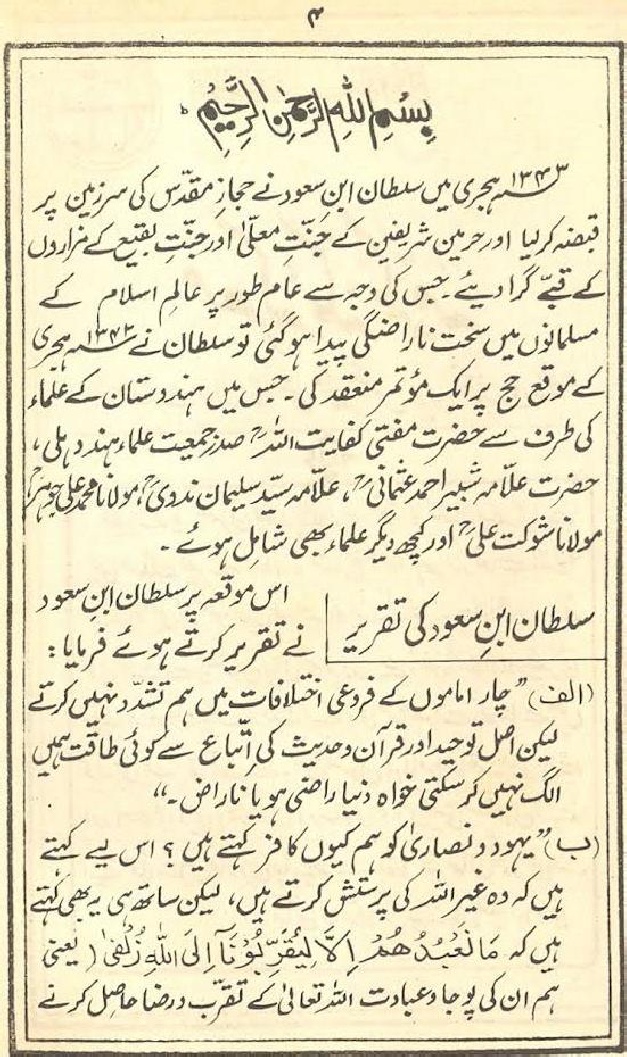 ۳
بِسْمِ اللّٰهِ الرَّحْمٰنِ الرَّحِیْمِ
۱۳۴۳ھ ہجری میں سلطان ابنِ سعود نے حجازِ مقدّس کی سرزمین پر
قبضہ کرلیا اور حرمین شریفین کے جنّتِ معلّیٰ اور جنّتِ بقیع کے مزاروں
کے قبّے گرا دیئے۔ جس کی وجہ سے عام طور پر عالمِ اسلام کے
مسلمانوں میں سخت ناراضگی پیدا ہوگئی تو سلطان نے ہجری
کے موقع حج پر ایک مؤتمر منعقد کی۔ جس میں ہندوستان کے علماء
کی طرف سے حضرت مفتی کفایت اللہؒ صدر جمعیت علماء ہند دہلی،
حضرت علّامہ شبیر احمد عثمانیؒ، علّامہ سیّد سلیمان ندویؒ، مولانا محمد علی جوہرؒ
مولانا شوکت علیؒ اور کچھ دیگر علماء بھی شامل ہوئے۔
سلطان ابنِ سعود کی تقریر
اس موقعہ پر سلطان ابنِ سعود
نے تقریر کرتے ہوئے فرمایا:
(الف) ”چار اماموں کے فروعی اختلافات میں ہم تشدّد نہیں کرتے
لیکن اصل توحید اور قرآن و حدیث کی اتّباع سے کوئی طاقت ہمیں
الگ نہیں کرسکتی خواہ دنیا راضی ہو یا ناراض۔“
(ب) ”یہود و نصاریٰ کو ہم کیوں کافر کہتے ہیں؟ اس لیے کہتے
ہیں کہ وہ غیر اللہ کی پرستش کرتے ہیں، لیکن ساتھ ہی یہ بھی کہتے
ہیں کہ مَا نَعْبُدُهُمْ اِلَّا لِیُقَرِّبُوْنَآ اِلَی اللّٰهِ زُلْفٰی (یعنی
ہم ان کی پوجا و عبادت اللہ تعالیٰ کے تقرّب و رضا حاصل کرنے